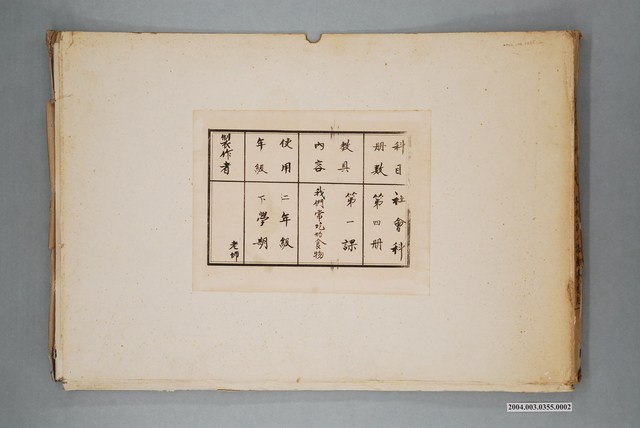 科目 社會科
册數 第四册
教具 第一課
內容 我們常吃的食物
使用 二年級
年級 下學期
製作者 老師
2004.003.0355.0002